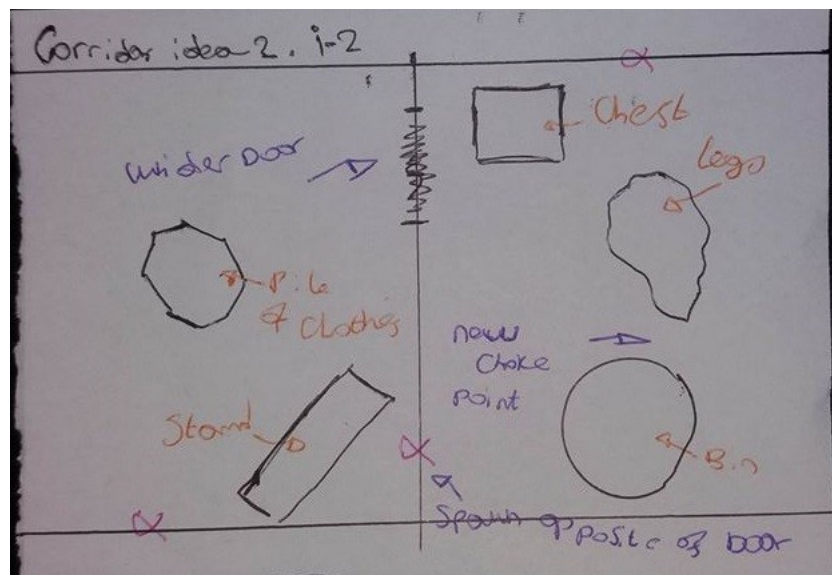 Corridor idea 2. i-2
Chest
Lego
wider Door
Pile
of
Clothes
new
Choke
point
Stand
Bin
Spawn opposite of Door